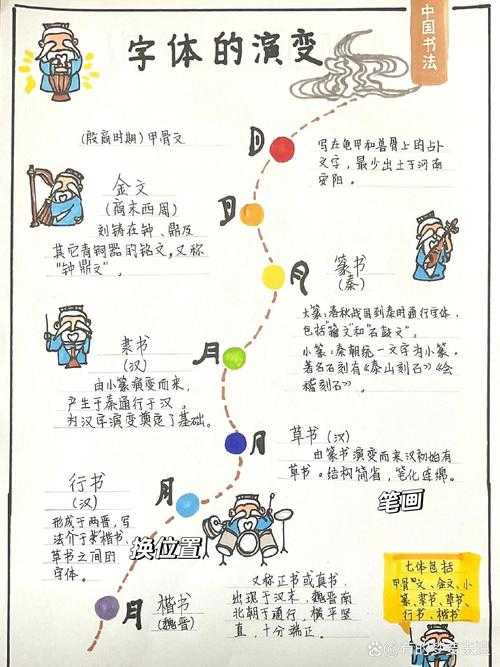 字体的演变
中国书法
(殷商时期)甲骨文
写在龟甲和兽骨上的占卜
文字，最少出土于河南
安阳。
金文
(商末西周)
刻铸在钟、鼎及
其它青铜器的铭文,又称
“钟鼎文”。
篆书
(秦)
大篆:春秋战国到秦时通行字体,
包括籀文”和“石鼓文”。
小篆:秦朝统一文字为小篆。
著名石刻有《泰山刻石》《会
稽刻石》。
月
隶书
(汉)
由小篆演变而来,
产生于秦通行于汉。
为汉字演变奠定了基础。
月
草书(汉)
由篆书演变而来汉初始有
草书。结构简省，笔化连绵。
月
笔画
行书
(汉)
形成于两晋,写
法介于楷书、
草书之间的
字体。
月
换位置
楷书
(魏晋)
月
又称正书或真书.
出现于汉末,魏晋南
北朝于通行,横平竖
直,十分端正。
七体包括
甲骨文、金文、小
篆、隶书、草书、
行书、楷书